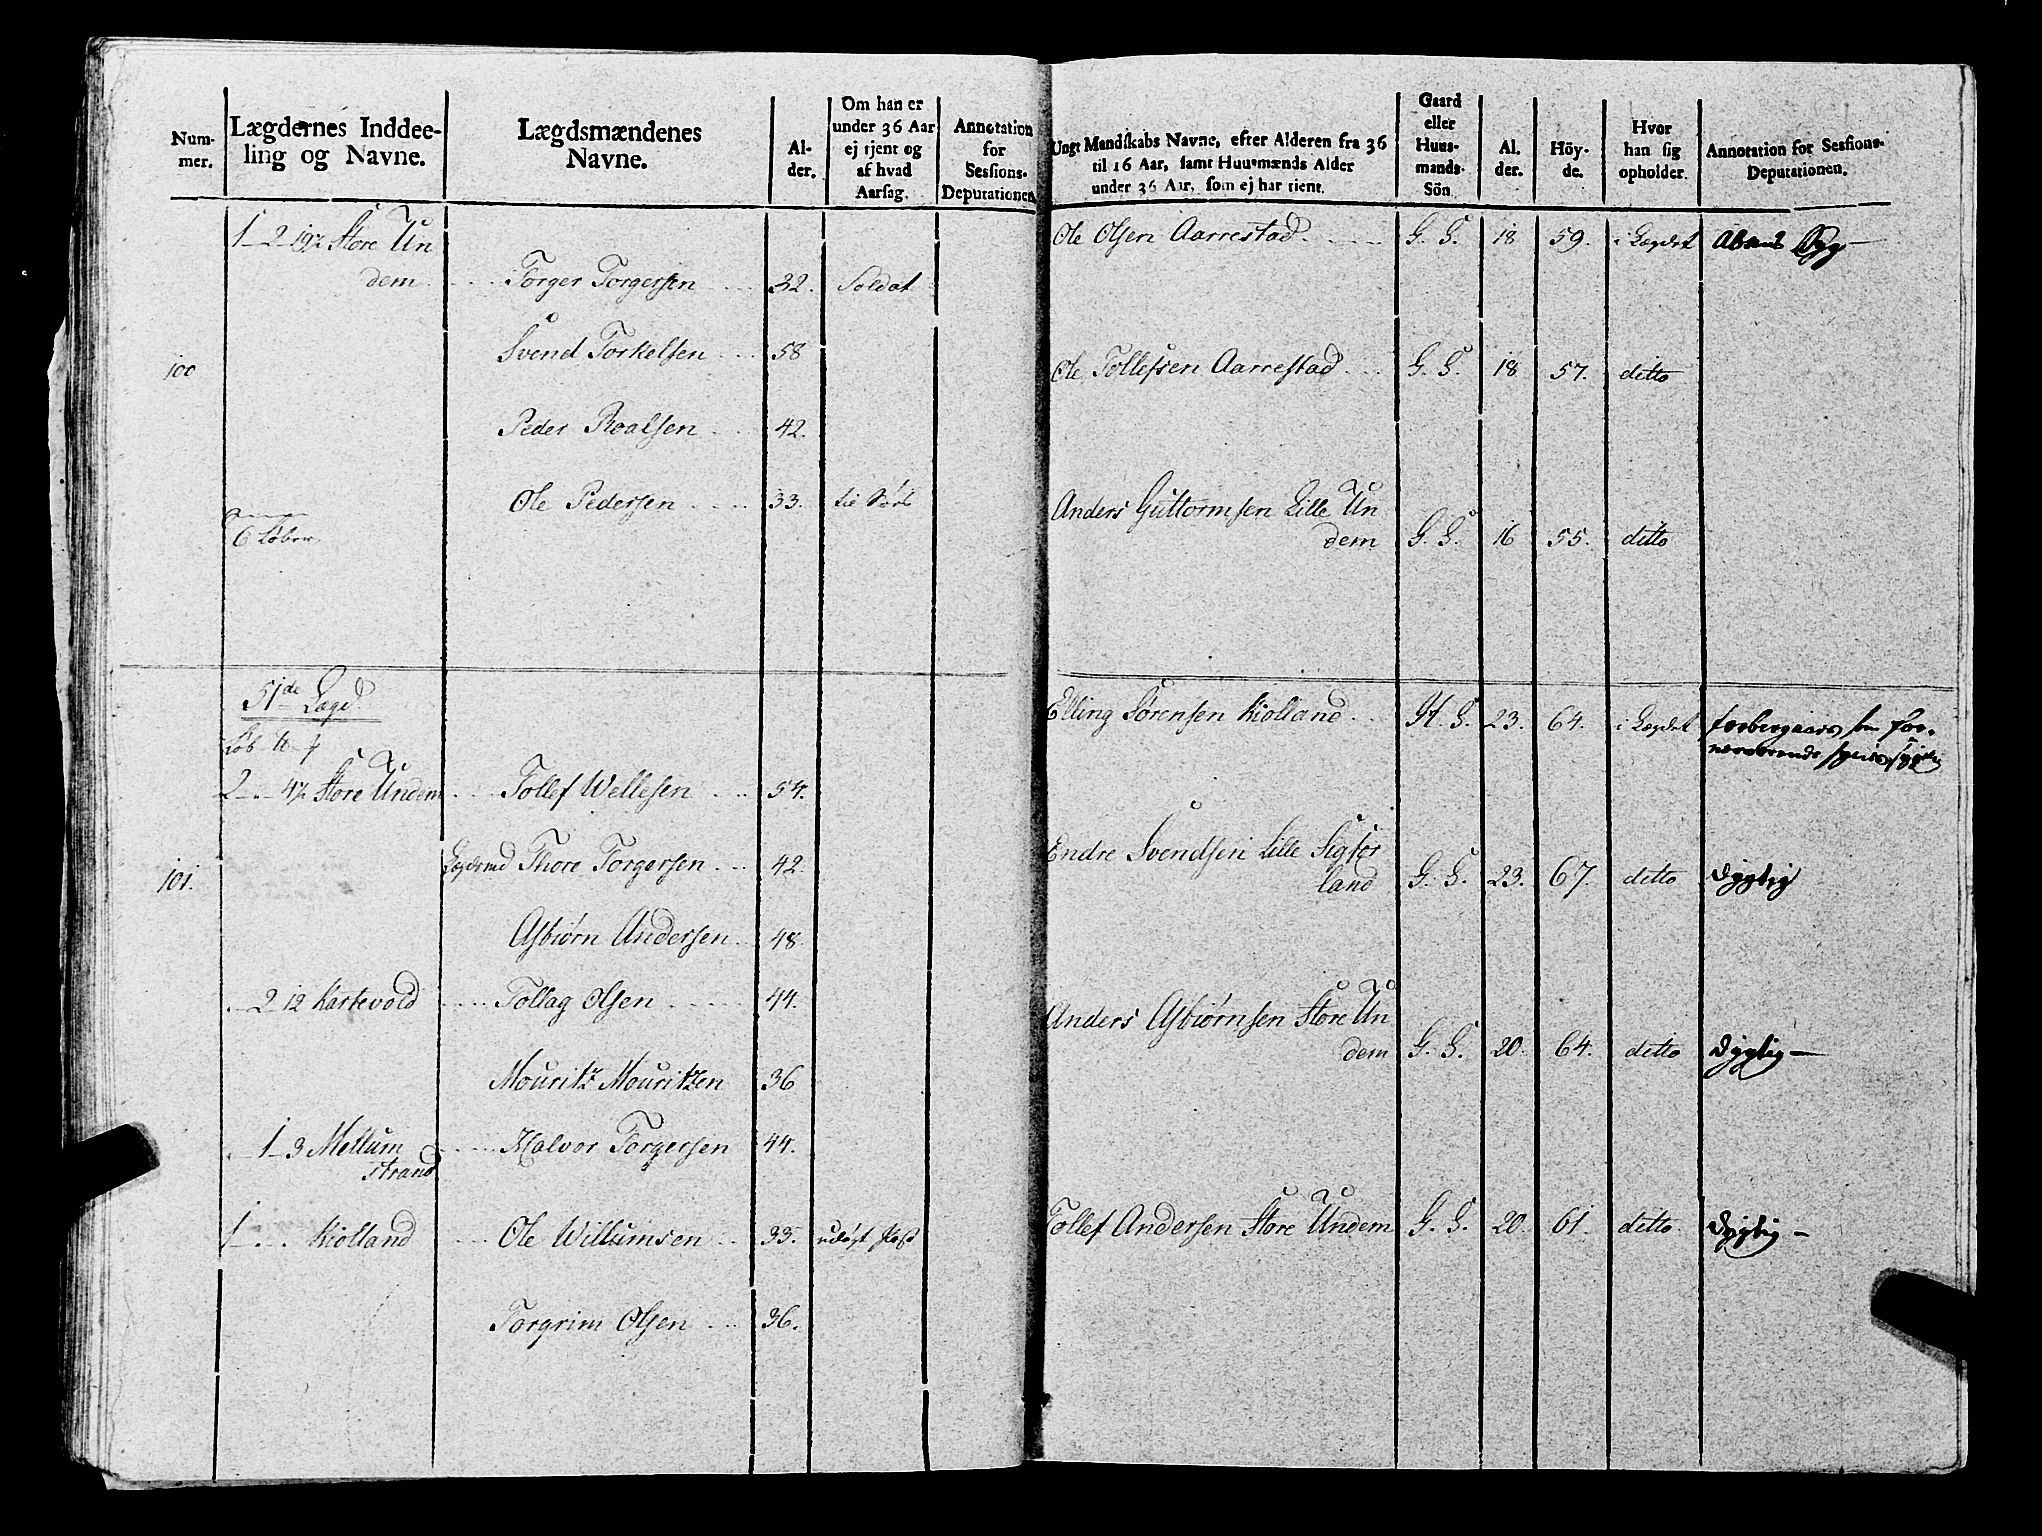 Num-
mer.
Lægdernes Inddee-
ling og Navne.
Lægdsmændenes
Navne.
Al-
der.
Om han er
under 36 Aar
ej tjent og
af hvad
Aarsag.
Annotation
for
Sessions-
Deputationen.
1 - 2 - 19½ Store Un
dem Torger Torgersen 32. Soldat
Svend Torkelsen 58
100
Peder Roalsen 42.
Ole Pedersen 33.
6 Løber
51de Lægd
Løb
2 4½ Store Undem Tollef Wellesen 54.
101. Thore Torgersen 42.
Asbiørn Andersen 48
2 12 Kartevold Tollag Olsen 44.
Mouritz Mouritzen 36
1 3 Mellum Halvor Torgersen 44.
strand
1 Kiolland Ole Willumsen 33.
Torgrim Olsen 36.
Ungt Mandskabs Navne, efter Alderen fra 36
til 16 Aar, samt Huusmænds Alder
under 36 Aar, som ej har tient.
Gaard
eller
Huus-
mands-
Sön.
Al.
der.
Höy-
de.
Hvor
han sig
opholder.
Annotation for Sessions-
Deputationen.
Ole Olsen Aarrestad G. S. 18 59. i Lægdet
Ole Tollefsen Aarrestad G. S. 18 57. ditto
Anders Guttormsen Lille Un
dem G. S. 16 55. ditto
Elling Sørensen Kiolland H. S. 23. 64. i Lægdet
Endre Svendsen Lille Sigfor
land G. S. 23. 67. ditto Dygtig
Anders Asbiørnsen Store Un
dem G. S. 20. 64. ditto Dygtig
Tollef Andersen Store Undem G. S. 20. 61. ditto Dygtig